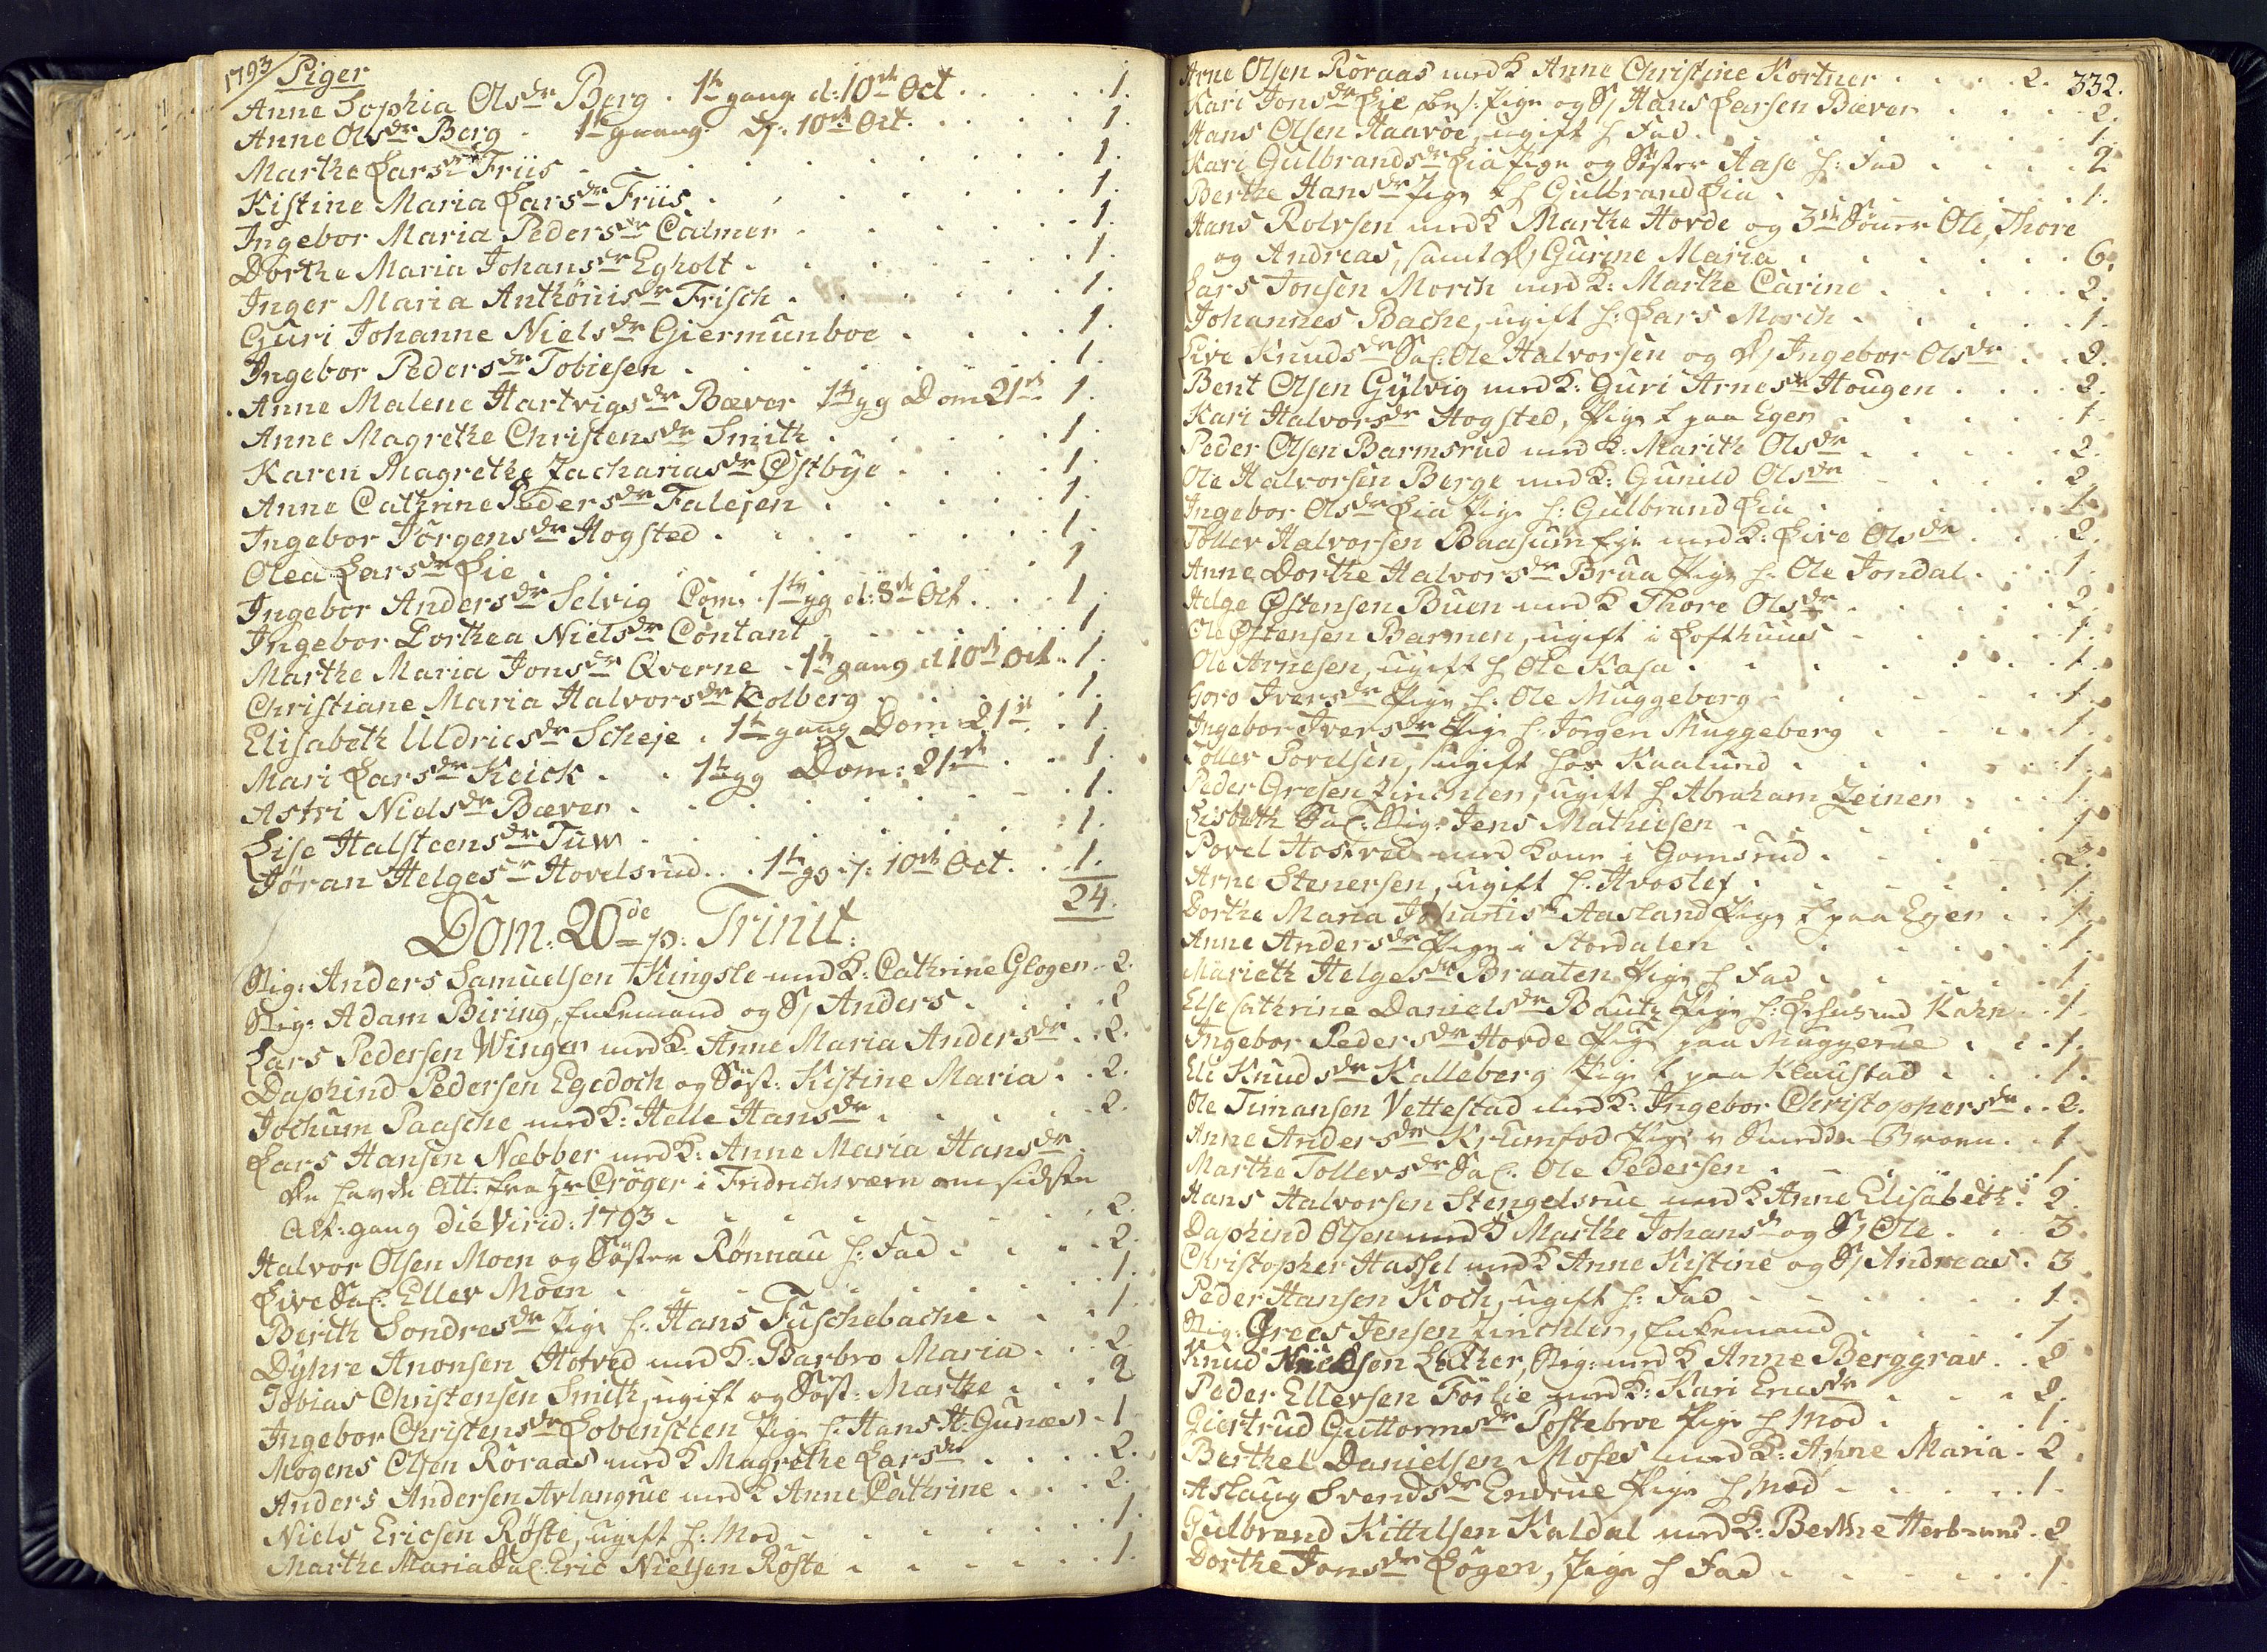 1793 Piger
Anne Sophia Olsdr Berg . 1te gang d: 10de Oct . . . . . 1.
Anne Olsdr Berg . 1te gaang d: 10de Oct. . . . . 1.
Marthe Larsdr Friis . . . . . 1.
Kistine Maria Larsdr Friis . . . . . 1.
Ingebor Maria Pedersdr Calmer . . . . . 1.
Dorthe Maria Johansdr Egholt . . . . . 1.
Inger Maria Anthönisdr Frisch . . . . . 1.
Guri Johanne Nielsdr Giermunboe . . . . 1.
Ingebor Pedersdr Tobiesen . . . . . 1.
Anne Malene Hartvigsdr Bæver 1te gg Dom 21de 1.
Anne Magrethe Christensdr Smith . . . . . 1.
Karen Magrethe Zachariasdr Østbye . . . . 1.
Anne Cathrine Pedersdr Falesen . . . . . 1.
Ingebor Jörgensdr Hogsted . . . . . 1.
Olea Larsdr Lie . . . . . 1
Ingebor Andersdr Selvig Com. 1te gg d: 8de Oct . . . 1.
Ingebor Dorthea Nielsdr Contant . . . . . 1
Marthe Maria Jonsdr Qverne . 1te gang d 10de Oct . 1.
Christiane Maria Halvorsdr Kolberg . . . . 1.
Elisabeth Uldricsdr Scheje . 1te gang Dom: 21de . 1.
Mari Larsdr Keick . . 1te gg Dom: 21de . . 1.
Astri Nielsdr Bæver . . . . . 1.
Lise Halsteensdr Tuw . . . . . 1.
Jöran Helgesdr Hovelsrud . . 1te gg d: 10de Oct. . 1.
24.
Dom: 20de p: Trinit:
Stig: Anders Samuelsen Kingsle med K: Cathrine Glogen . 2.
Stig: Adam Biring, Enkemand og S/ Anders . . . . 2
Lars Pedersen Winger med K: Anne Maria Andersdr . 2.
Daphind Pedersen Egedoch og Söst: Kistine Maria . . 2.
Jochum Paasche med K: Helle Hansdr . . . . . 2.
Lars Hansen Næbber med K: Anne Maria Hansdr
de havde Att: fra Hr Cröger i Fridrichsværn om sidste
Alt: gang die Virid: 1793 . . . . . 2.
Halvor Olsen Moen og Söster Rönnau h: Fad . . . . 2.
Live Sal: Eller Moen . . . . . 1.
Berith Sondresdr Pige h: Hans Fuschebache . . . 1.
Dyhre Anonsen Hotved med K: Barbro Maria . . . 2.
Tobias Christensen Smith, ugift og Söst: Marthe . . . 2
Ingebor Christensdr Lobensteen Pige h: Hans H: Gunæs . 1
Mogens Olsen Röraas med K Magrethe Larsdr . . . . 2.
Anders Andersen Avlangrue med K Anne Cathrine . . . 2.
Niels Ericsen Röste, ugift h: Mod . . . . . 1.
Marthe Maria Sal: Eric Nielsen Röste . . . . . 1.
332.
Arne Olsen Röraas med K Anne Christine Kortner . . . . 2.
Kari Jonsdr Lie, Pige og S/ Hans Larsen Bæver . . . 2.
Hans Olsen Haavoe, ugift h: Fad . . . . . 1.
Kari Gulbrandsdr Lia Pige og Söster Aase h: Fad . . . 2
Berthe Hansdr Pige h Gulbrand Lia . . . . . 1.
Hans Rolvsen med K Marthe Hovde og 3de Sönner Ole, Thore
og Andreas, samt D/ Gurine Maria . . . . . 6.
Lars Jonsen Morch med K: Marthe Carine . . . . 2.
Johannes Bache, ugift h: Lars Morch . . . . . 1.
Live Knudsdr Sal: Ole Halvorsen og D/ Ingebor Olsdr . . 2.
Bent Olsen Gulvig med K: Guri Arnesdr Hougen . . . 2.
Kari Halvorsdr Hogsted, Pige paa Egen . . . . 1.
Peder Olsen Barmsrud med K: Marith Olsdr . . . . 2.
Ole Halvorsen Berge med K: Gunild Olsdr . . . . 2
Ingebor Olsdr Lia Pige h: Gulbrand Lia . . . . 1.
Toller Halvorsen Baasumeje med K: Live Olsdr . . . 2.
Anne Dorthe Halvorsdr Brua Pige h: Ole Jondal . . . 1.
Helge Østensen Buen med K Thore Olsdr . . . . 2.
Ole Østensen Barmen, ugift i Lofthuus . . . . 1.
Ole Arnesen, ugift h Ole Kasa . . . . . 1.
Goro Iversdr Pige h: Ole Muggeberg . . . . . 1.
Ingebor Iversdr Pige h: Jörgen Muggeberg . . . . 1.
Toller Povelsen, ugift hos Kaalund . . . . . 1.
Peder Gresen Zinchler, ugift h Abraham Zeiner . . . 1.
Lisbeth Sal: Stig: Jens Mathiesen . . . . . 1
Povel Hostved med Kone i Gomsrud . . . . . 2.
Arne Stenersen, ugift h: Hvoslef . . . . . 1.
Dorthe Maria Johanisdr Aasland Pige paa Egen . . . 1.
Anne Andersdr Pige i Stordalen . . . . . 1.
Marieth Helgesdr Braaten Pige h Fad . . . . . 1
Else Cathrine Danielsdr Bautz Pige h: Kahn . . 1.
Ingebor Pedersdr Hovde Pige paa Muggerue . . . 1.
Eli Knudsdr Kalleberg Pige paa Klaustad . . . 1.
Ole Timansen Vettestad med K: Ingebor Christophersdr . . 2.
Anne Andersdr Krumfod Pige v Smedde-Broen . . 1
Marthe Tollevsdr Sal: Ole Pedersen . . . . . 1.
Hans Halvorsen Stengelsrue med K Anne Elisabeth . 2.
Daphind Olsen med K Marthe Johansdr og S/ Ole . . . 3.
Christopher Hassel med K Anne Kistine og S/ Andreas . 3.
Peder Hansen Koch, ugift h: Fad . . . . . 1.
Stig: Grees Jensen Zinchler, Enkemand . . . . 1.
Knud Nielsen Lather, Stig: med K Anne Berggrav . . 2
Peder Ellevsen Förlie med K: Kari Ericsdr . . . . 2.
Giertrud Guttormsdr Postebroe Pige h Mod . . . . 1.
Berthel Danielsen Moses med K: Anne Maria . 2.
Aslaug Svendsdr Endrue Pige h Mod . . . . . 1.
Gulbrand Kittilsen Kaldal med K: Berthe Herbrands . 2
Dorthe Jonsdr Logen, Pige h Fad . . . . . 1.